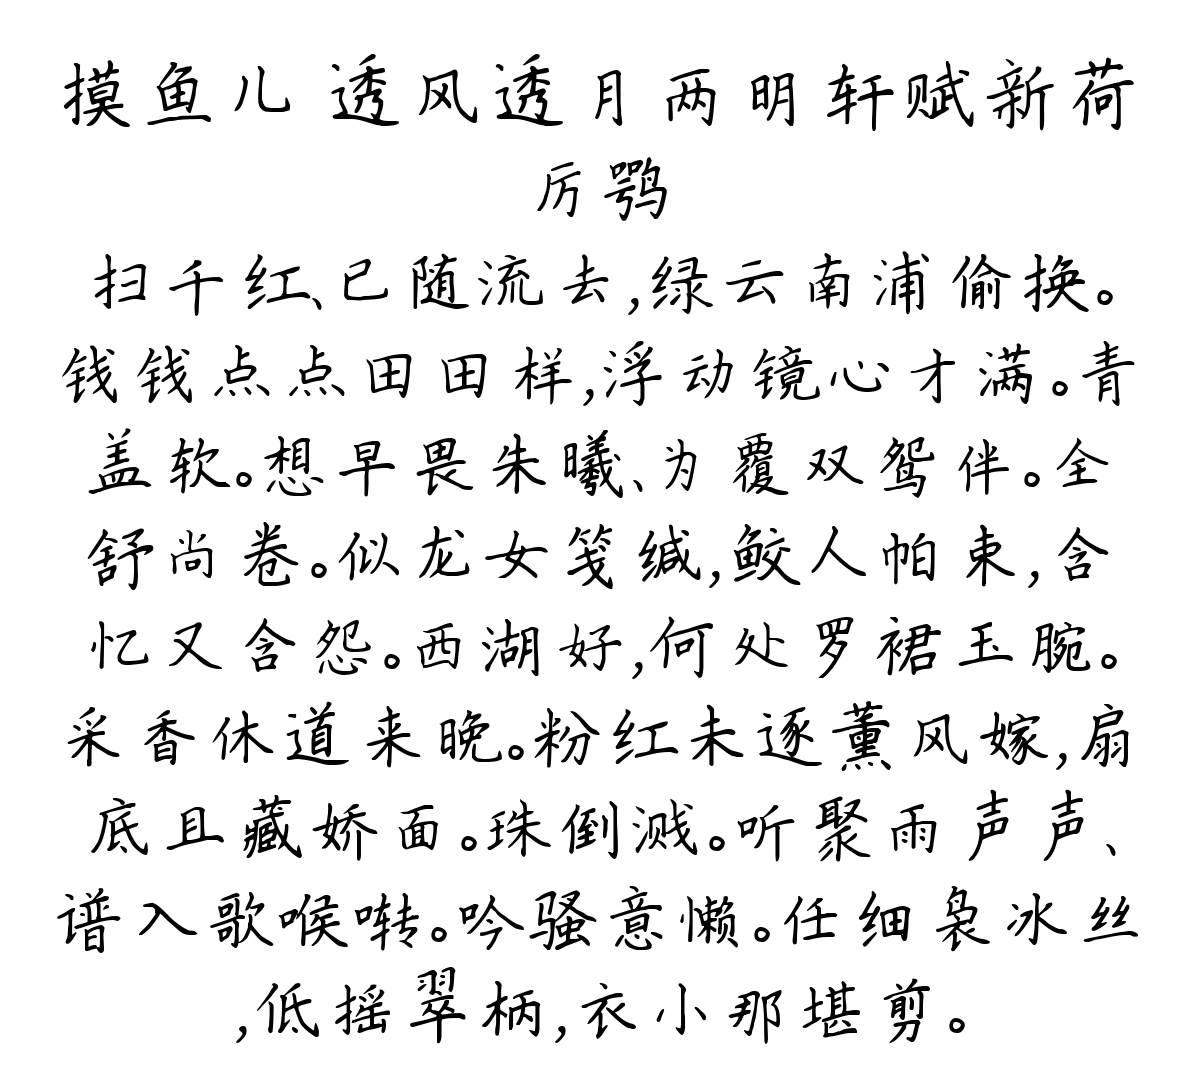 摸鱼儿 透风透月两明轩赋新荷
厉鹗
扫千红、已随流去,绿云南浦偷换。
钱钱点点田田样,浮动镜心才满。青
盖软。想早畏朱曦、为覆双鸳伴。全
舒尚卷。似龙女笺缄,鲛人帕束,含
忆又含怨。西湖好,何处罗裙玉腕。
采香休道来晚。粉红未逐薰风嫁,扇
底且藏娇面。珠倒溅。听聚雨声声、
谱入歌喉啭。吟骚意懒。任细袅冰丝
,低摇翠柄,衣小那堪剪。